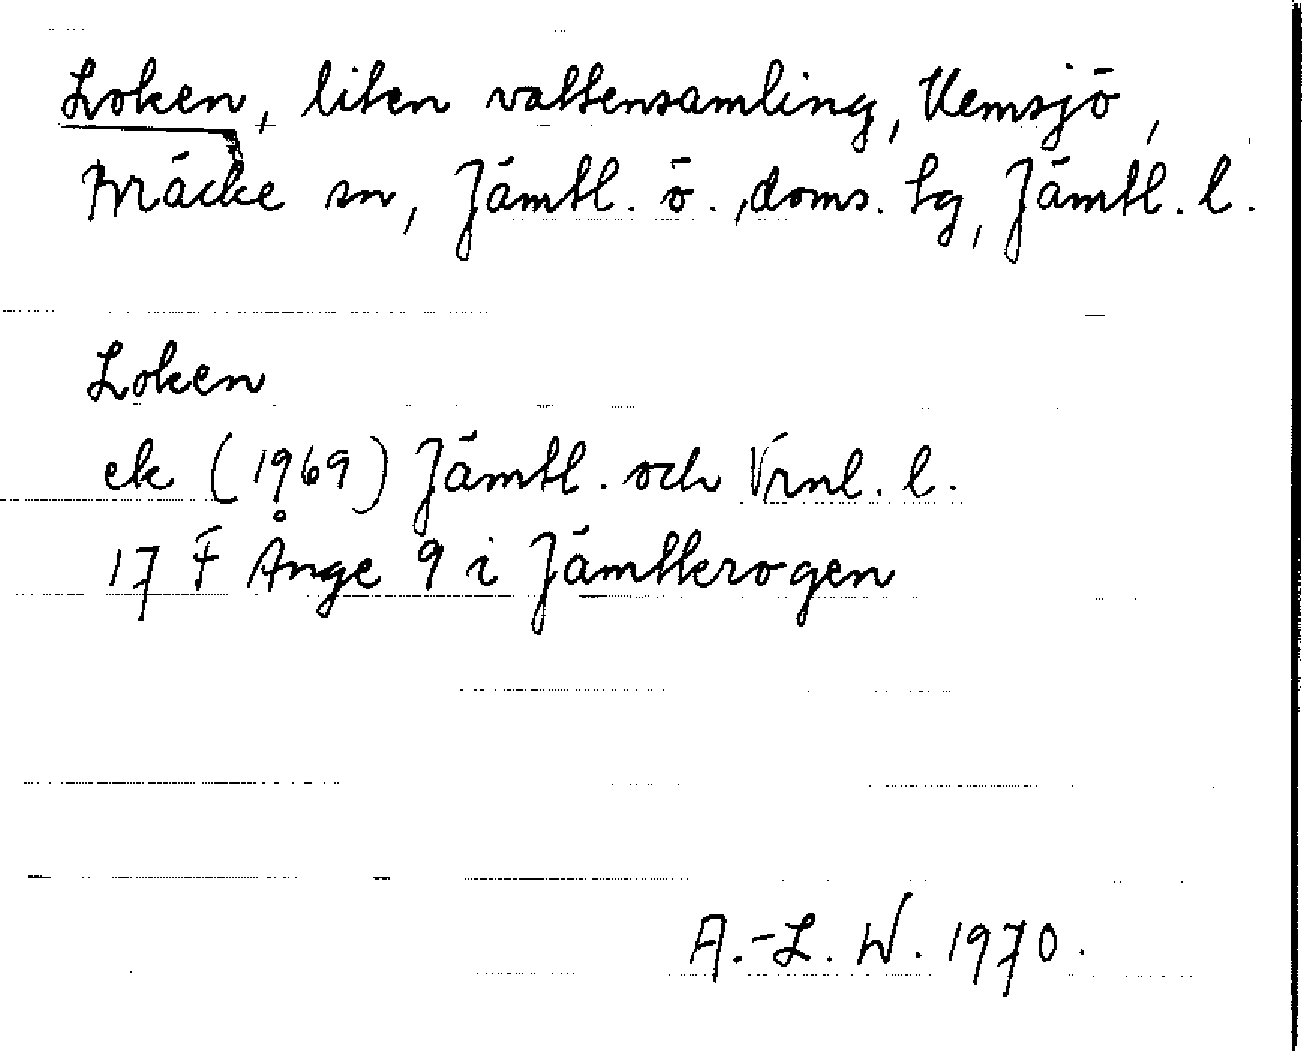 Loken, liten vattensamling, Kemsjö,
Bräcke sn, Jämtl. ö. doms. tg, Jämtl. l.
Loken
ek (1969) Jämtl. och Vrnl. l.
17 F Ånge 9 i Jämtkrogen
A.-L. W. 1970.